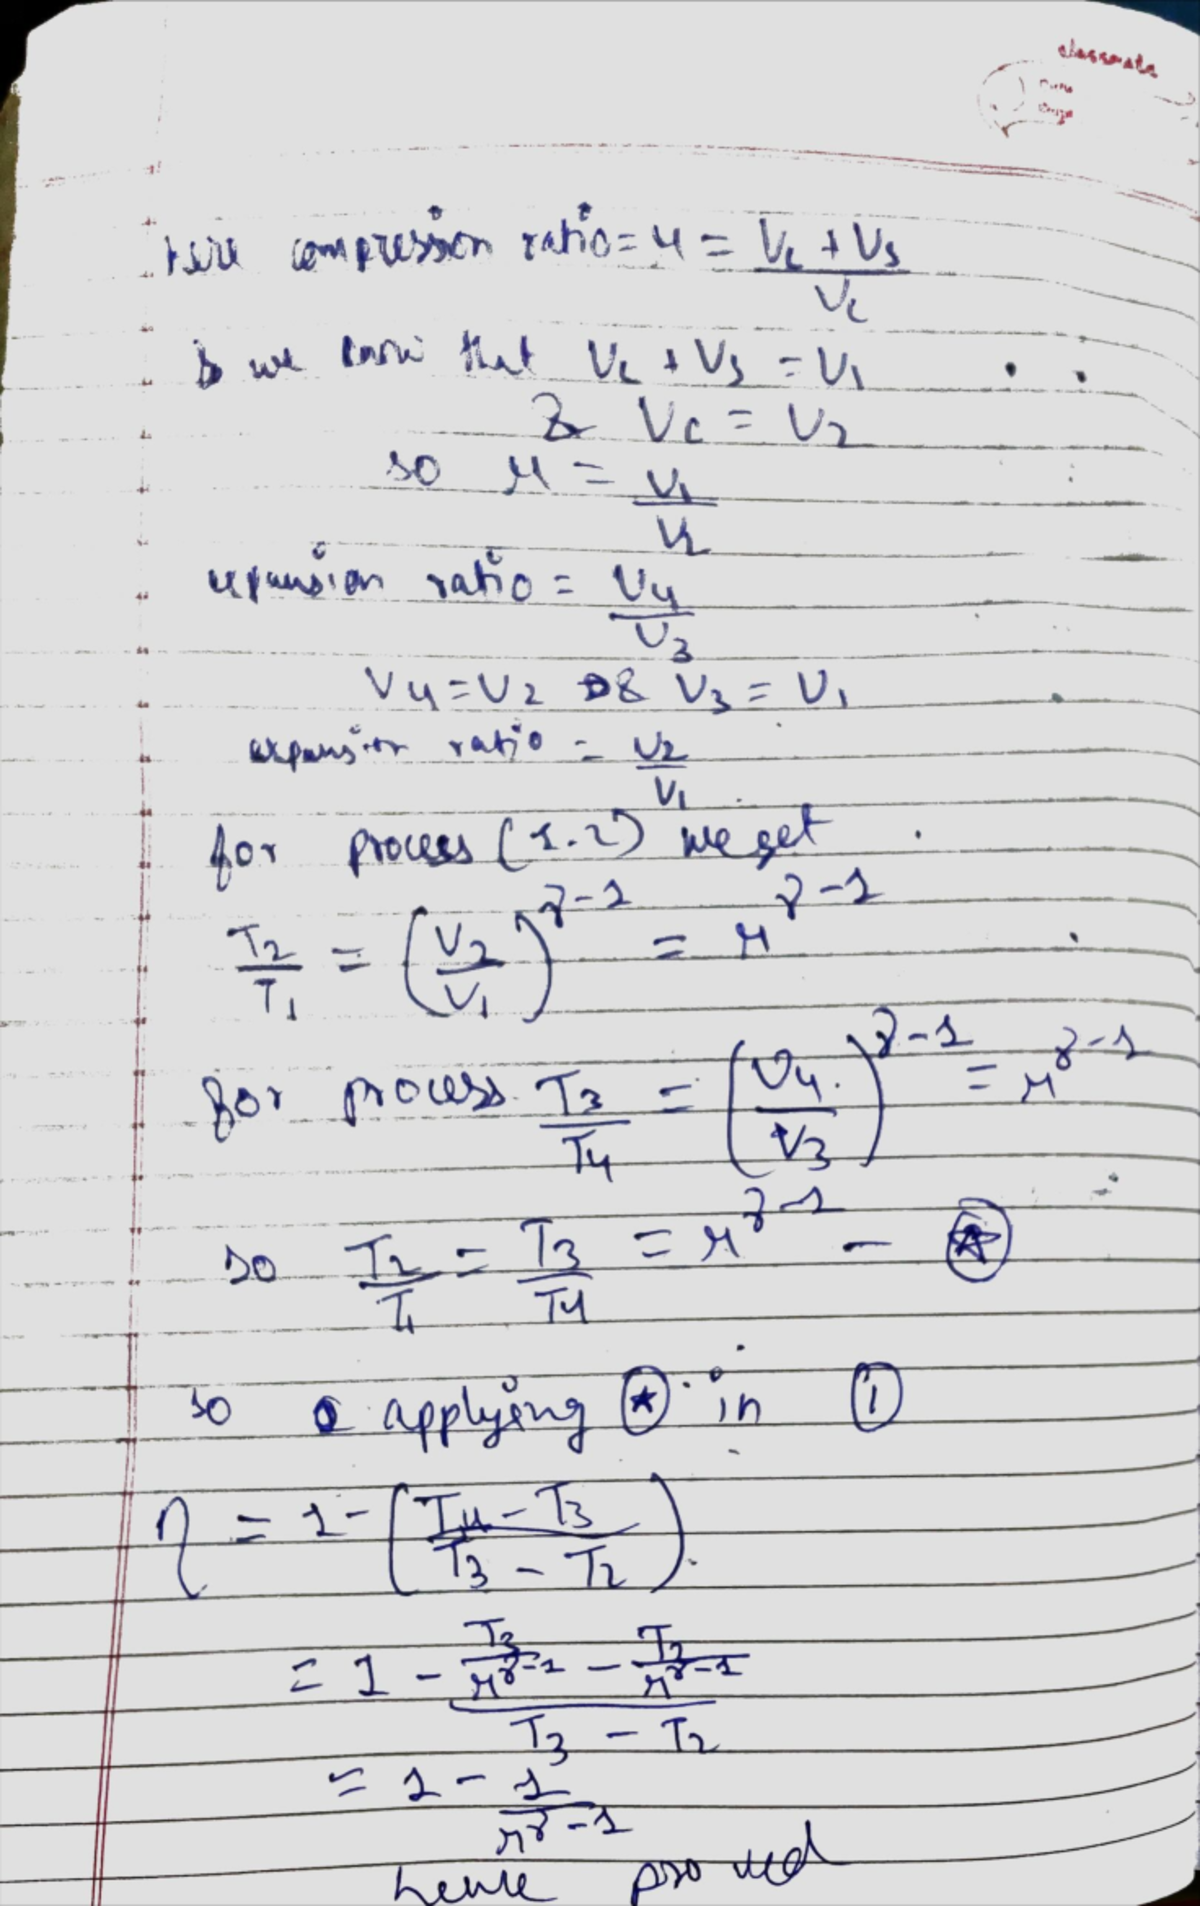 classmate
Date
Page
here compression ratio = r = Vc + Vs / Vc
& we know that Vc + Vs = V1
& Vc = V2
so r = V1 / V2
expansion ratio = V4 / V3
V4 = V2 & V3 = V1
expansion ratio = V2 / V1
for process (1-2) we get
T2 / T1 = (V2 / V1)^γ-1 = r^γ-1
for process T3 / T4 = (V4 / V3)^γ-1 = r^γ-1
so T2 / T1 = T3 / T4 = r^γ-1 — ★
so applying ★ in ①
η = 1 - (T4 - T3 / T3 - T2)
= 1 - T3 / r^γ-1 - T2 / r^γ-1 / T3 - T2
= 1 - 1 / r^γ-1
hence proved